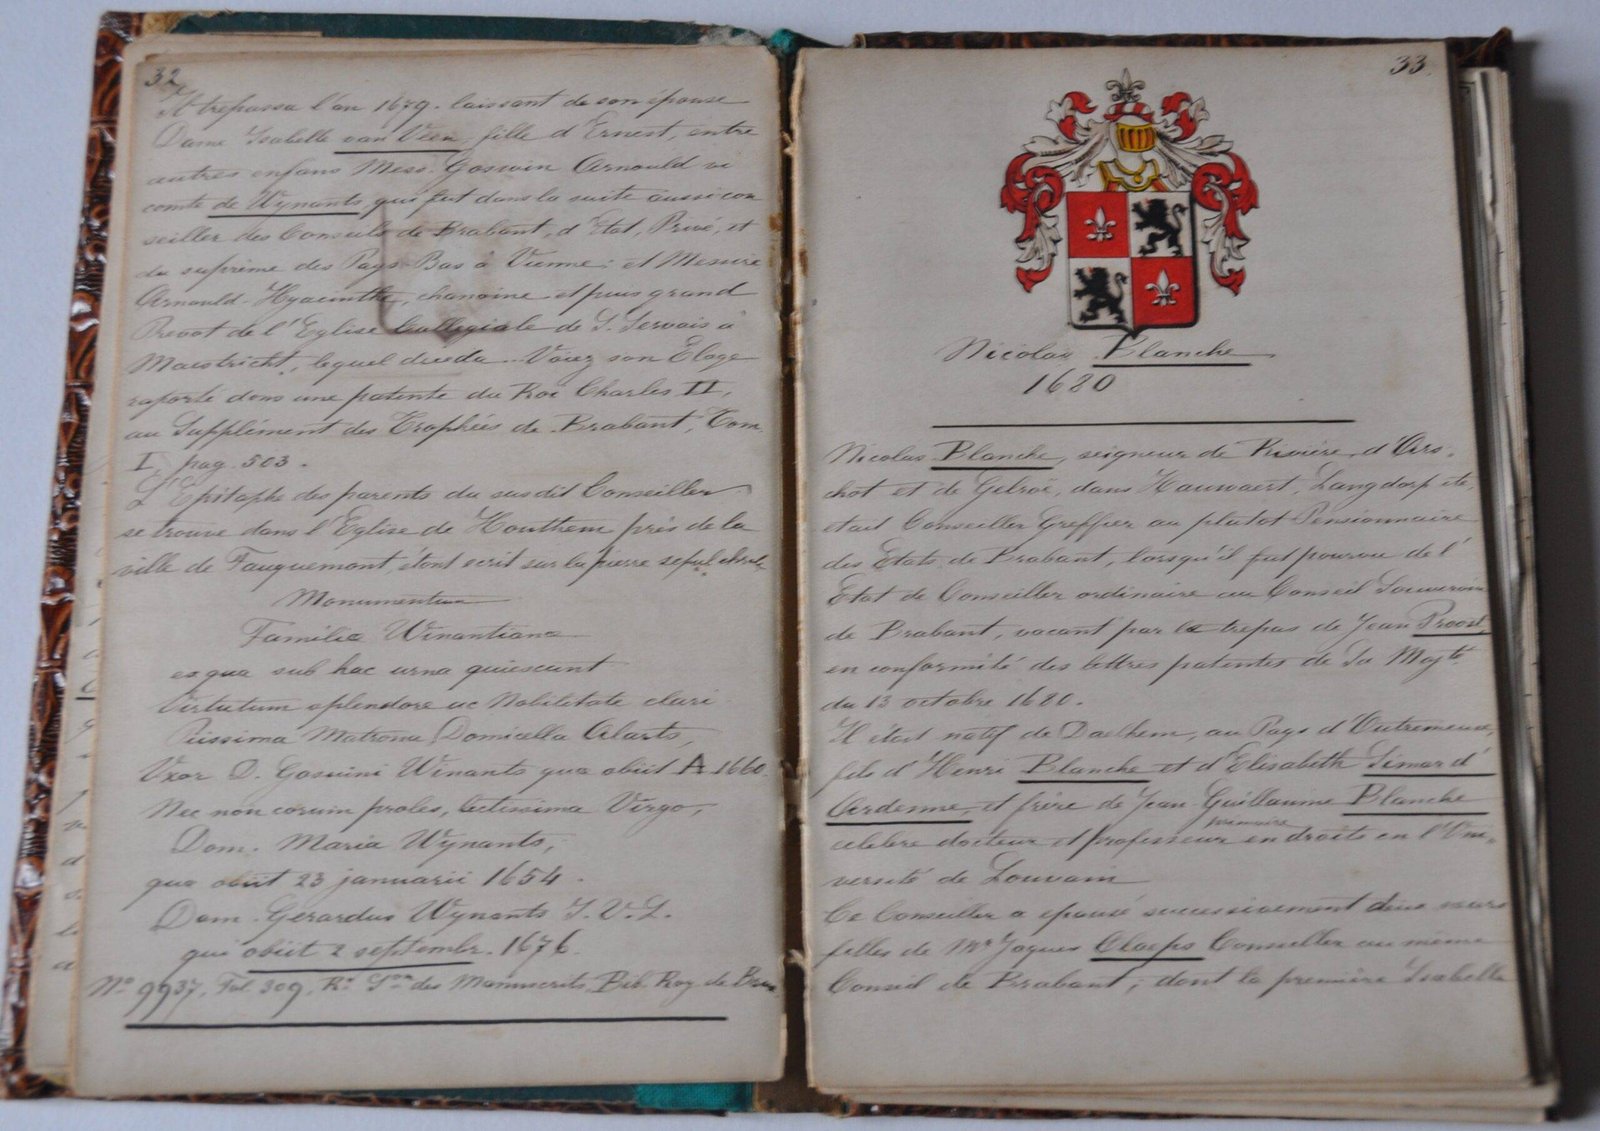 32
Il trépassa l'an 1679. laissant de son épouse
Dame Isabelle van Veen, fille d'Ernest, entre
autres enfans Mess. Goswin Arnould vi
comte de Wynants, qui fut dans la suite aussi con
seiller des Conseils de Brabant, d'Etat, Privé, et
du suprème des Pays-Bas à Vienne; et Messire
Arnould-Hyacinthe, chanoine et puis grand
Prevot de l'Eglise Collegiale de S. Servais à
Maestricht, lequel deceda... Voiez son Eloge
raporté dans une patente du Roi Charles II,
au Supplément des Trophées de Brabant, Tom.
I, pag. 503.
L'Epitaphe des parents du susdit Conseiller
se trouve dans l'Eglise de Houthem près de la
ville de Fauquemont, étant ecrit sur la pierre sepulchrale
Monumentum
Familiæ Winantiana
ex qua sub hac urna quiescunt
Virtutum splendore ac Nobilitate clari
Piissima Matrona Domicella Alarts,
Vxor D. Goswini Winants qua obiit A 1660.
Nec non eorum proles, lectissima Virgo,
Dom. Maria Wynants,
qua obiit 23 januarii 1654.
Dom. Gerardus Wynants J.V.L.
qui obiit 2 septembr. 1676.
No 9937, Fol. 309, Rº. Son des Manuscrits, Bib. Roy. de Brux.
33.
Nicolas Blanche
1680
Nicolas Blanche, seigneur de Rivière, d'Ars.
chot et de Gelroë, dans Hauwaert, Langdorp etc,
etait Conseiller Greffier au plutot Pensionnaire
des Etats de Brabant, lorsqu'il fut pourvu de l'
Etat de Conseiller ordinaire au Conseil Souverain
de Brabant, vacant par le trepas de Jean Proost,
en conformité des lettres patentes de Sa Majté
du 13 octobre 1680.
Il étoit natif de Daelhem, au Pays d'Outremeuse,
fils d'Henri Blanche et d'Elisabeth Simar d'
Ardenne et frère de Jean Guillaume Blanche
célèbre docteur et professeur primaire en droits en l'Uni-
versité de Louvain
Ce Conseiller a epousé successivement deux sœurs
filles de Mr Jaques Claeps Conseiller au même
Conseil de Brabant; dont la première Isabelle